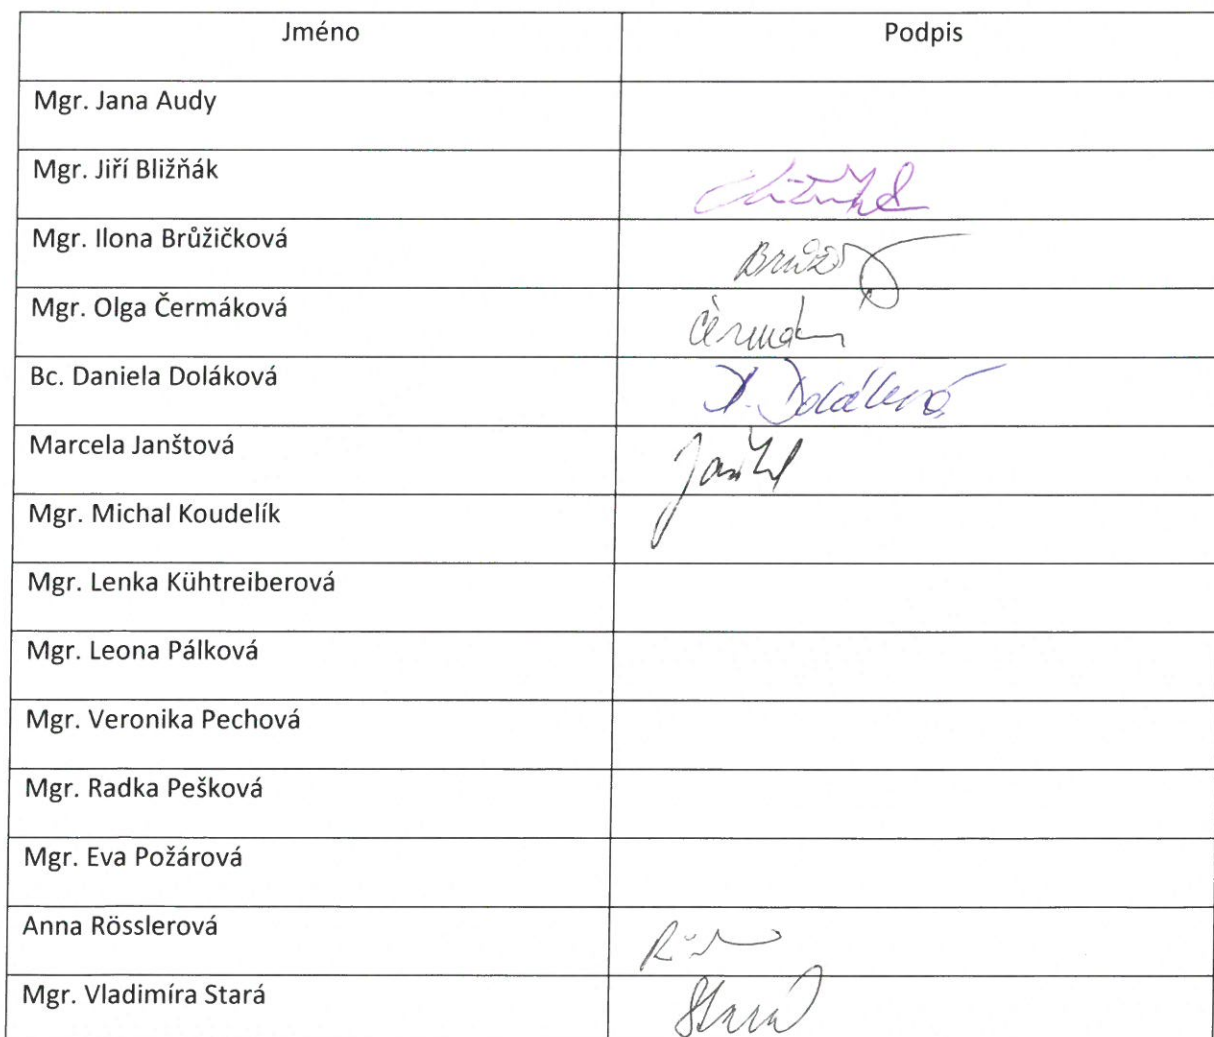 Jméno Podpis
Mgr. Jana Audy
Mgr. Jiří Bližňák
Mgr. Ilona Brůžičková
Mgr. Olga Čermáková
Bc. Daniela Doláková D. Doláková
Marcela Janštová
Mgr. Michal Koudelík
Mgr. Lenka Kühtreiberová
Mgr. Leona Pálková
Mgr. Veronika Pechová
Mgr. Radka Pešková
Mgr. Eva Požárová
Anna Rösslerová
Mgr. Vladimíra Stará Stará